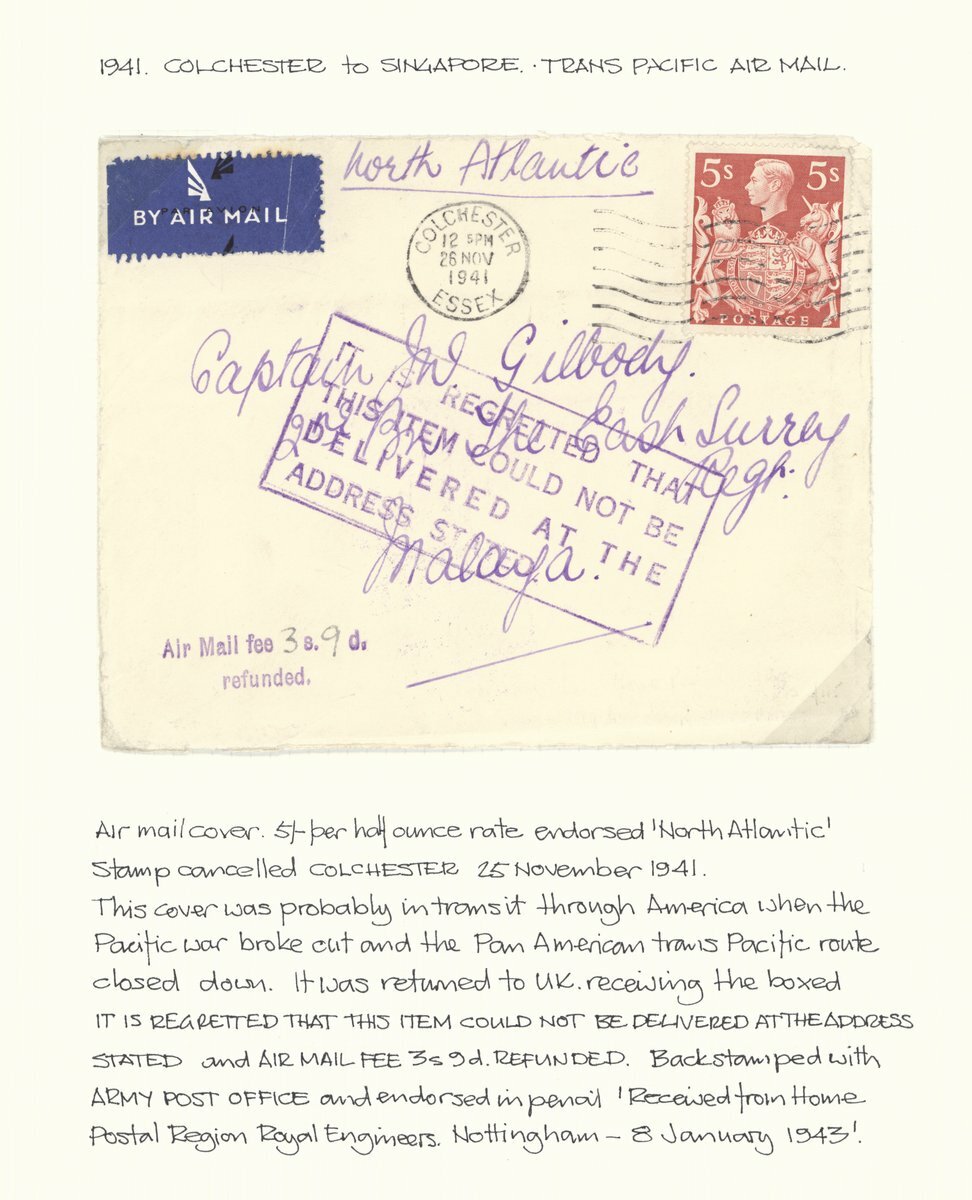 1941. COLCHESTER to SINGAPORE. · TRANS PACIFIC AIR MAIL.
North Atlantic
5s 5s
BY AIR MAIL
PAR AVION
COLCHESTER
12 5PM
26 NOV
1941
ESSEX
POSTAGE
Captain W. Gilbody.
2nd Bn. The East Surrey
Regt.
Malaya.
IT IS REGRETTED THAT
THIS ITEM COULD NOT BE
DELIVERED AT THE
ADDRESS STATED
Air Mail fee 3 s. 9 d.
refunded.
Air mail cover. 5/- per half ounce rate endorsed 'North Atlantic'
Stamp cancelled COLCHESTER 25 November 1941.
This cover was probably in transit through America when the
Pacific war broke out and the Pan American trans Pacific route
closed down. It was returned to UK. receiving the boxed
IT IS REGRETTED THAT THIS ITEM COULD NOT BE DELIVERED AT THE ADDRESS
STATED and AIR MAIL FEE 3s 9d. REFUNDED. Backstamped with
ARMY POST OFFICE and endorsed in pencil 'Received from Home
Postal Region Royal Engineers. Nottingham - 8 January 1943'.